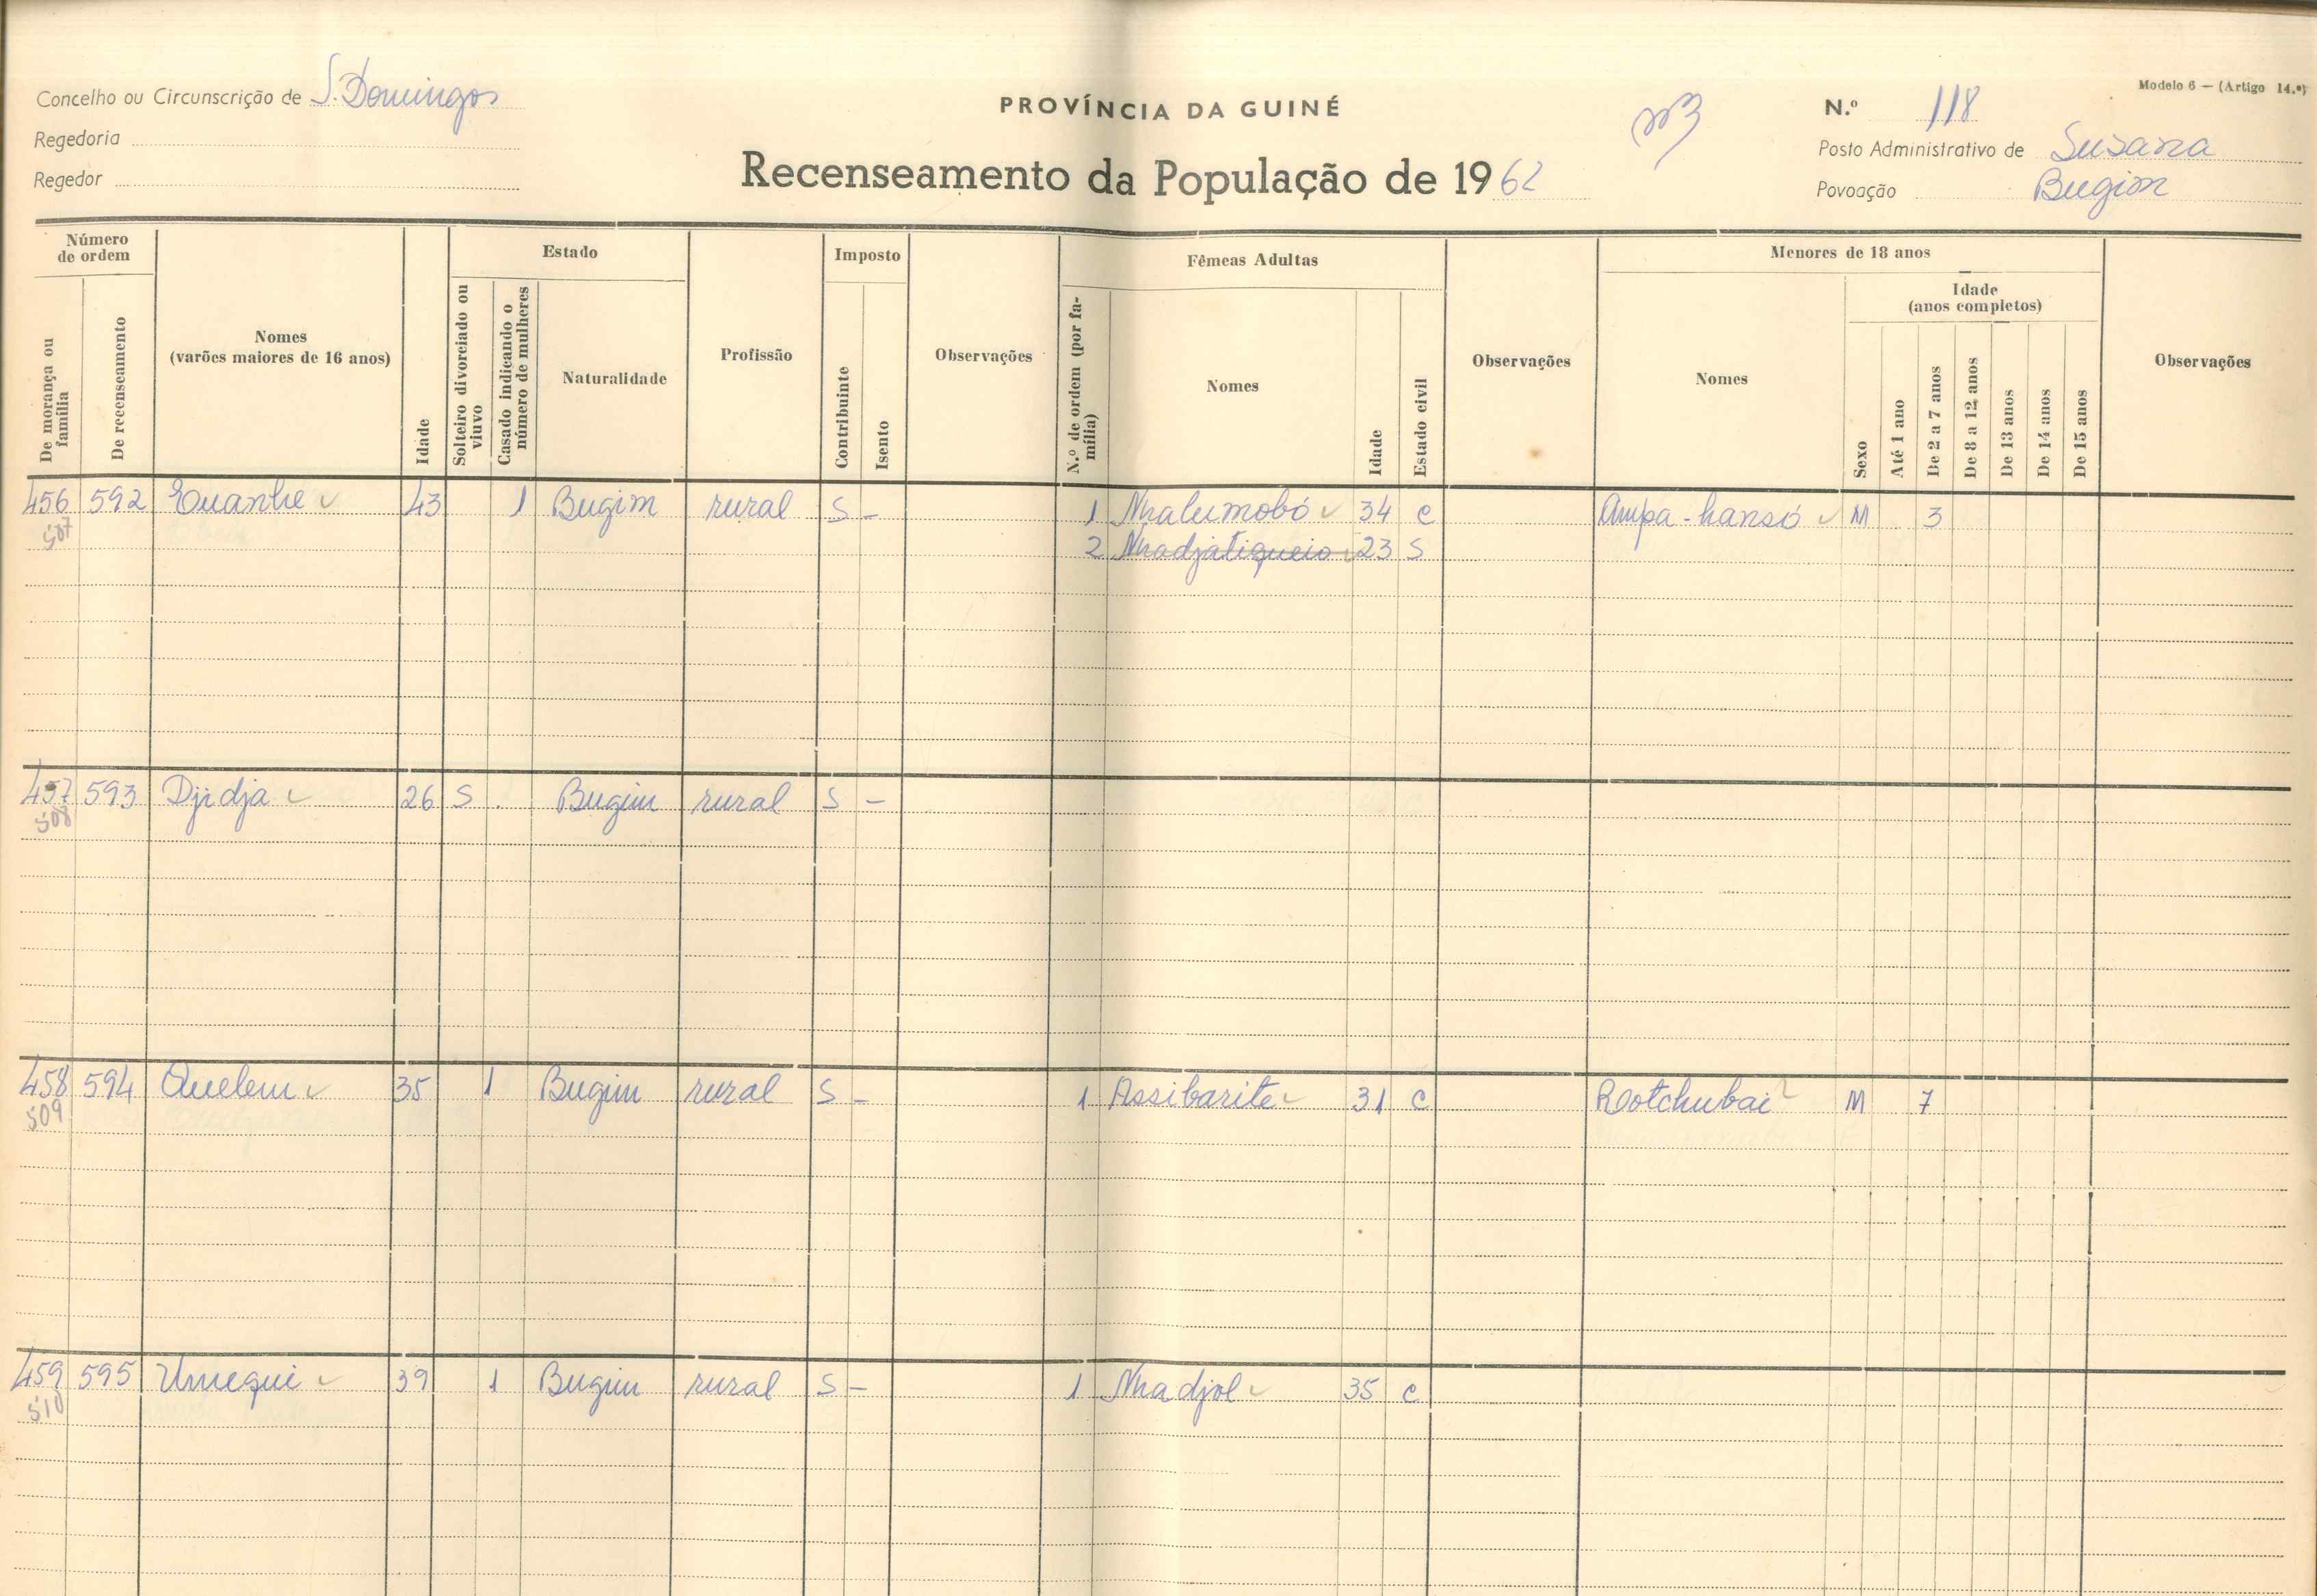 Modelo 6 — (Artigo 14.º)
Concelho ou Circunscrição de S. Domingos
PROVÍNCIA DA GUINÉ
N.º 118
Regedoria
Posto Administrativo de Susana
Regedor
Recenseamento da População de 1962
Povoação Bugim
Número de ordem
De morança ou família
De recenseamento
Nomes
(varões maiores de 16 anos)
Idade
Estado
Solteiro divorciado ou viuvo
Casado indicando o número de mulheres
Naturalidade
Profissão
Imposto
Contribuinte
Isento
Observações
Fêmeas Adultas
N.º de ordem (por família)
Nomes
Idade
Estado civil
Observações
Menores de 18 anos
Nomes
Sexo
Idade
(anos completos)
Até 1 ano
De 2 a 7 anos
De 8 a 12 anos
De 13 anos
De 14 anos
De 15 anos
Observações
456 592 Euanhe 43 1 Bugim rural S - 1 Nhalumobó 34 c Ampa-hansó M 3
507 2 Nhadjatiqueio 23 S
457 593 Djidja 26 S Bugim rural S -
508
458 594 Quelem 35 1 Bugim rural S - 1 Assibarite 31 c Rotchubai M 7
509
459 595 Umequi 39 1 Bugim rural S - 1 Nhadjol 35 c
510